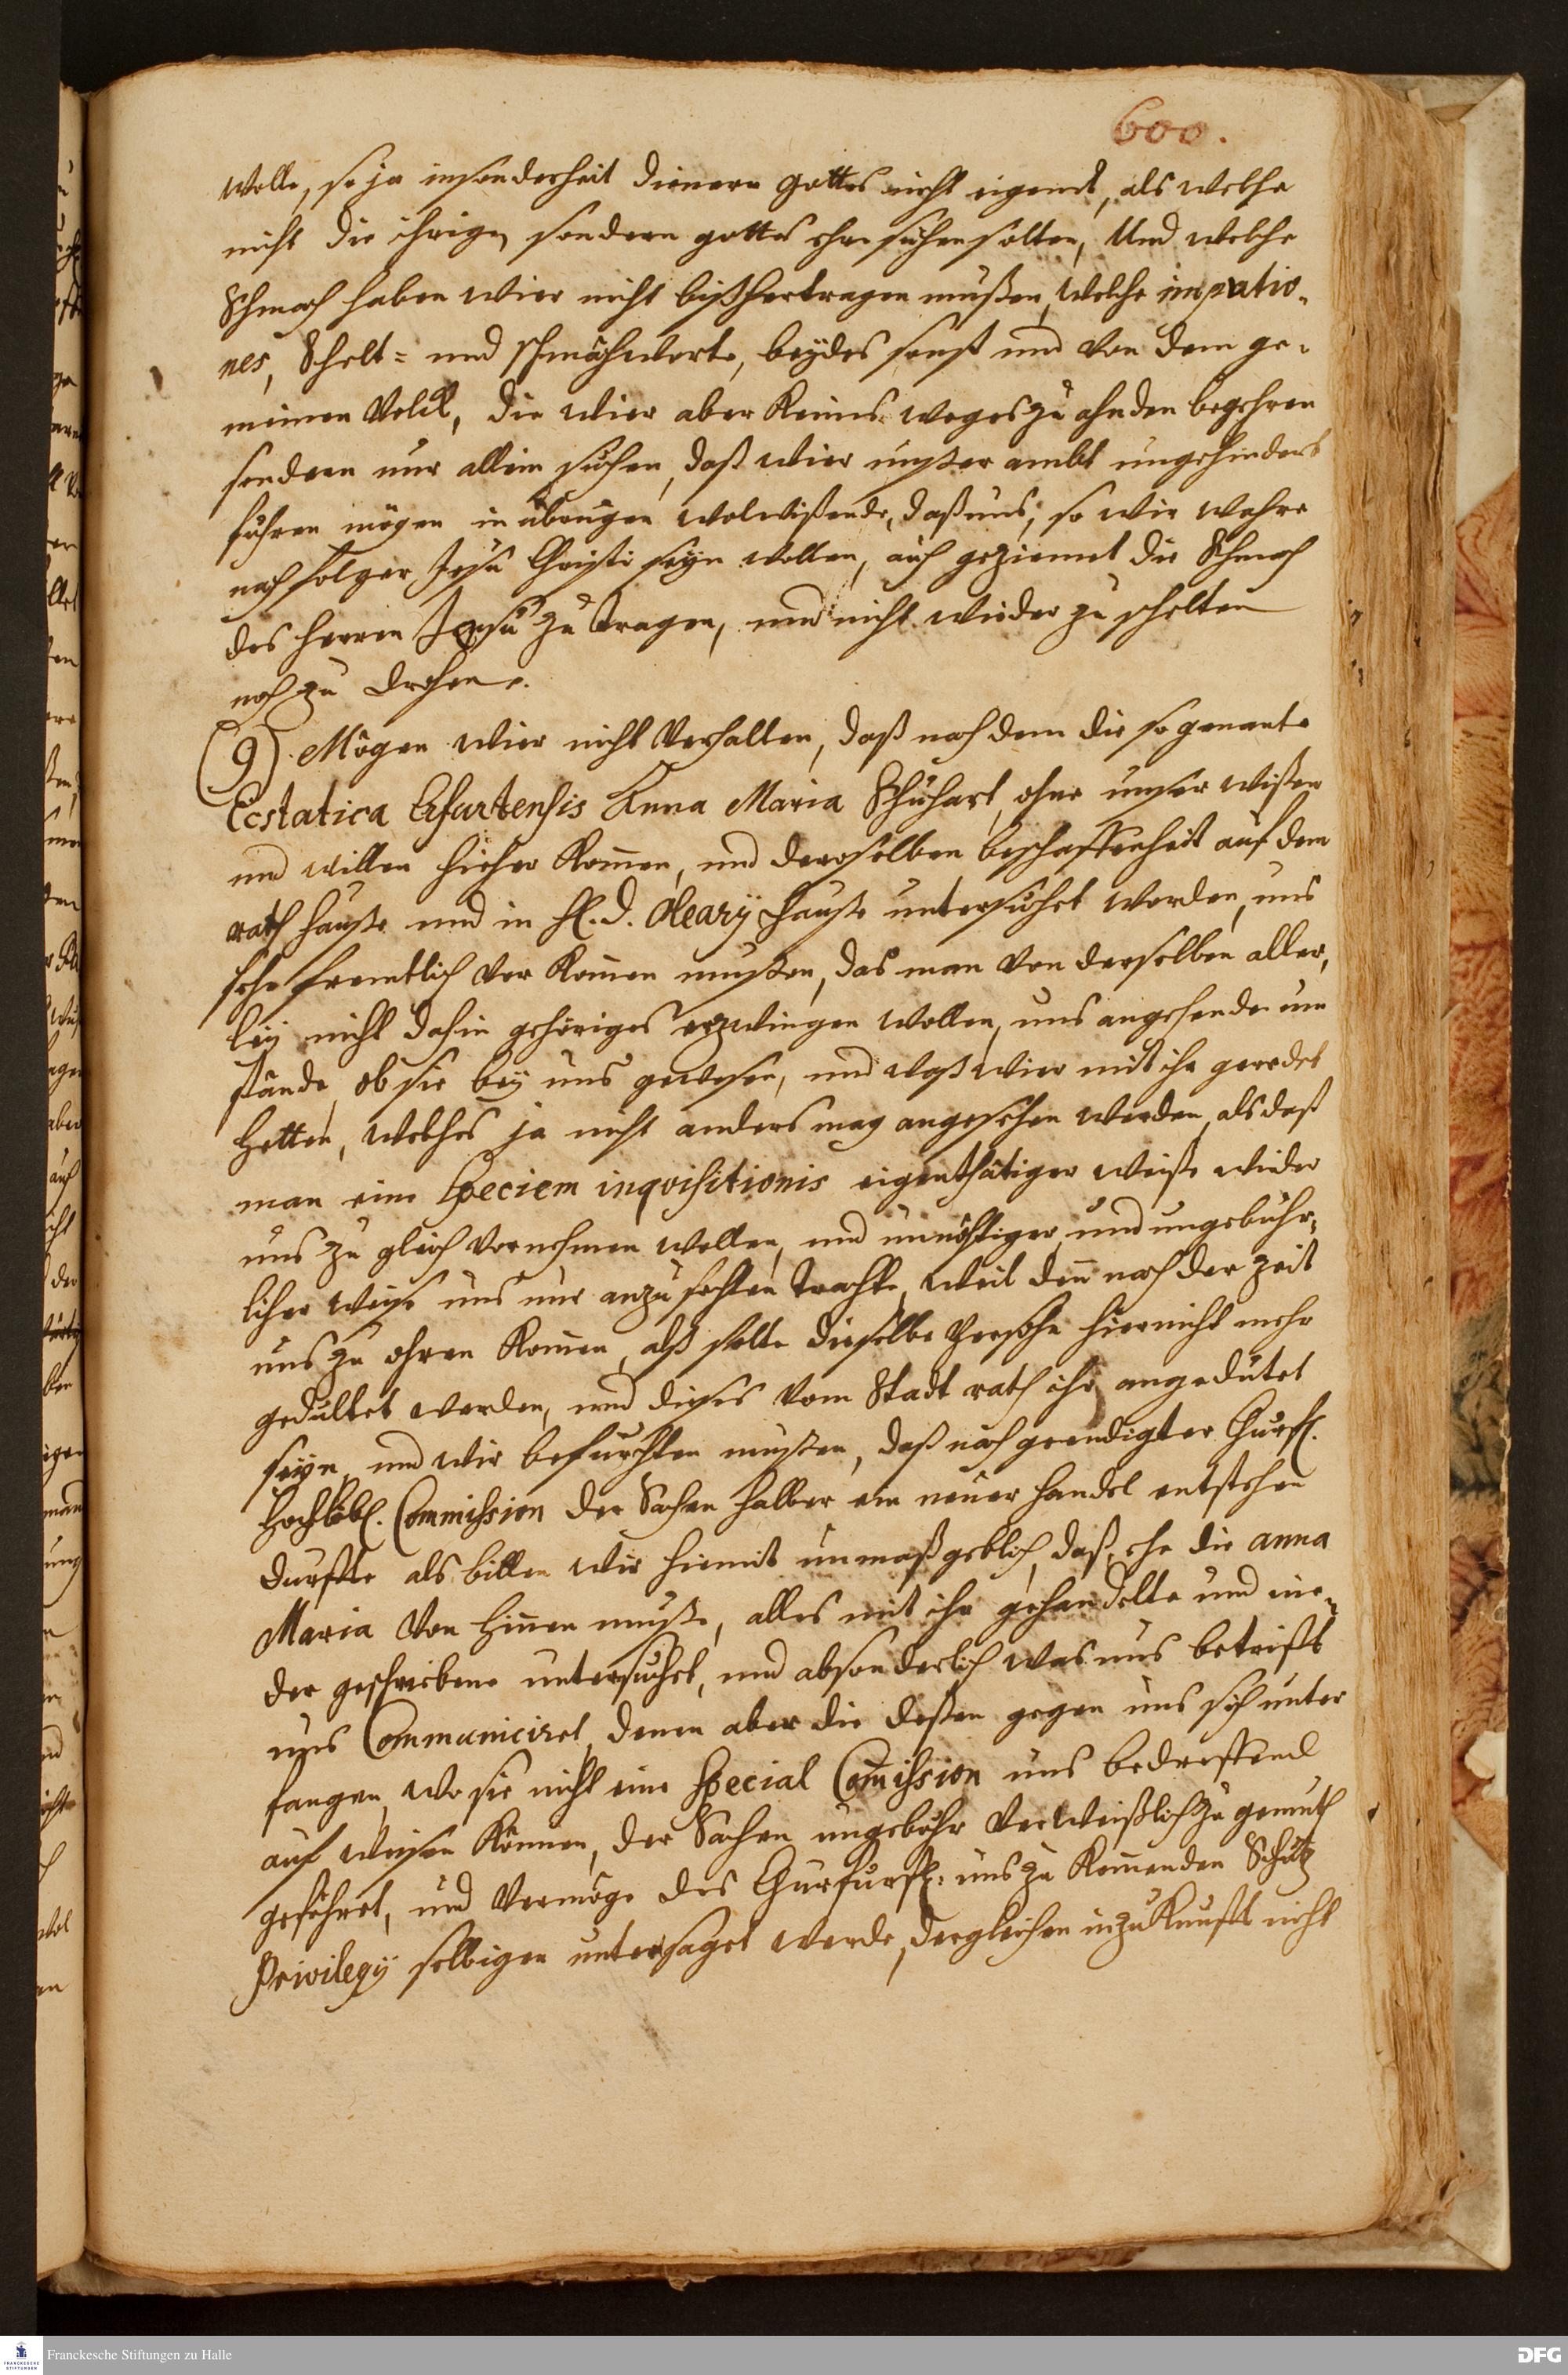 600.
wolle, so ja insonderheit dienern gottes nicht eigent, als welche
nicht die ihrige, sondern gottes ehre suchen solten, Und welche
Schmach haben wier nicht bißher tragen mußen, welche imputatio-
nes, Schelt= und schmähworte, beÿdes sonst und von dem ge-
meinen Volck, die wier aber Keines weges zu ahnden begehren
sondern nur allein suchen, daß wier unßer ambt ungehindert
führen mögen in übrigen wolwißende, daß uns, so wir wahre
nachfolger Jesu Christi seyn wollen, auch geziemet die Schmach
des herren Jesu zu tragen, und nicht wieder zu schelten
noch zu drohen.
(9) Mögen wier nicht Verhalten, daß nach dem die so genante
Ecstatica Erfurtensis Anna Maria Schuhart, ohne unser wißen
und willen hieher Kom̄en, und deroselben beschaffenheit auf dem
rath hauße und in H. D. Olearÿ Hauße untersuchet worden, uns
sehr fremtlich vor Kom̄en mußen, das man von derselben aller,
leÿ nicht dahin gehöriges erzwingen wollen, uns angehende um
stände, ob sie beÿ uns gewesen, und waß wier mit ihr geredet
hetten, welches ja nicht anders mag angesehen werden, als daß
man eine Speciem inqvisitionis eigenthätiger weiße wieder
uns zu gleich vornehmen wollen, und unnöhtiger und ungebühr-
licher weise uns nur anzufechten trachte, weil den̄ nach der zeit
uns zu ohren Kom̄en, alß solte dieselbe Persohn hier nicht mehr
gedultet werden, und dieses vom Stadt rath ihr angedütet
seyn, und wir befürchten mußen, daß nach geendigter Churf.
Hochlöbl. Commission der Sachen halber ein neuer handel entstehen
durffte als bitten wir hiemit unmaßgeblich, daß, ehe die anna
Maria von hin̄en muße, alles mit ihr gehandelte und nie-
der geschriebene untersuchet, und absonderlich was uns betrifft
uns Communiciret, denen aber die deßen gegen uns sich unter
fangen, wo sie nicht eine special Com̄ission uns bedreffend
auf weisen Können, der Sachen ungebühr Verweißlich zu gemüth
geführet, und Vermöge des Churfürstl: uns zu Kom̄enden Schutz
Privilegÿ selbigen untersaget werde, dergleichen in zu Kunfft nicht
Franckesche Stiftungen zu Halle
DFG